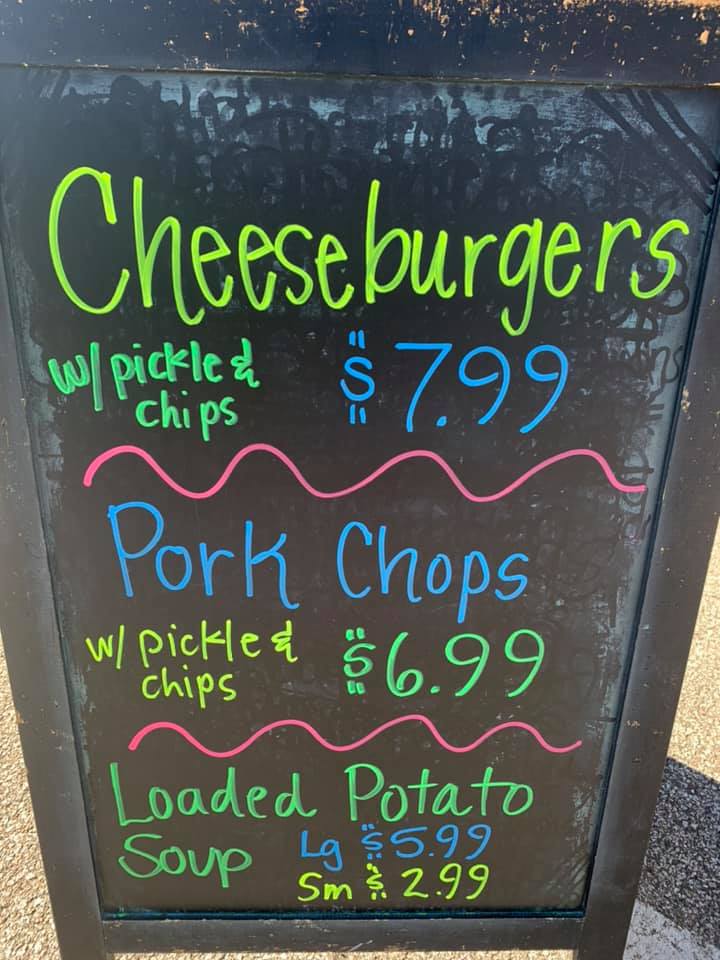 Cheeseburgers
w/ pickle & $7.99
chips
Pork Chops
w/ pickle & $6.99
chips
Loaded Potato
Soup Lg $5.99
Sm $2.99